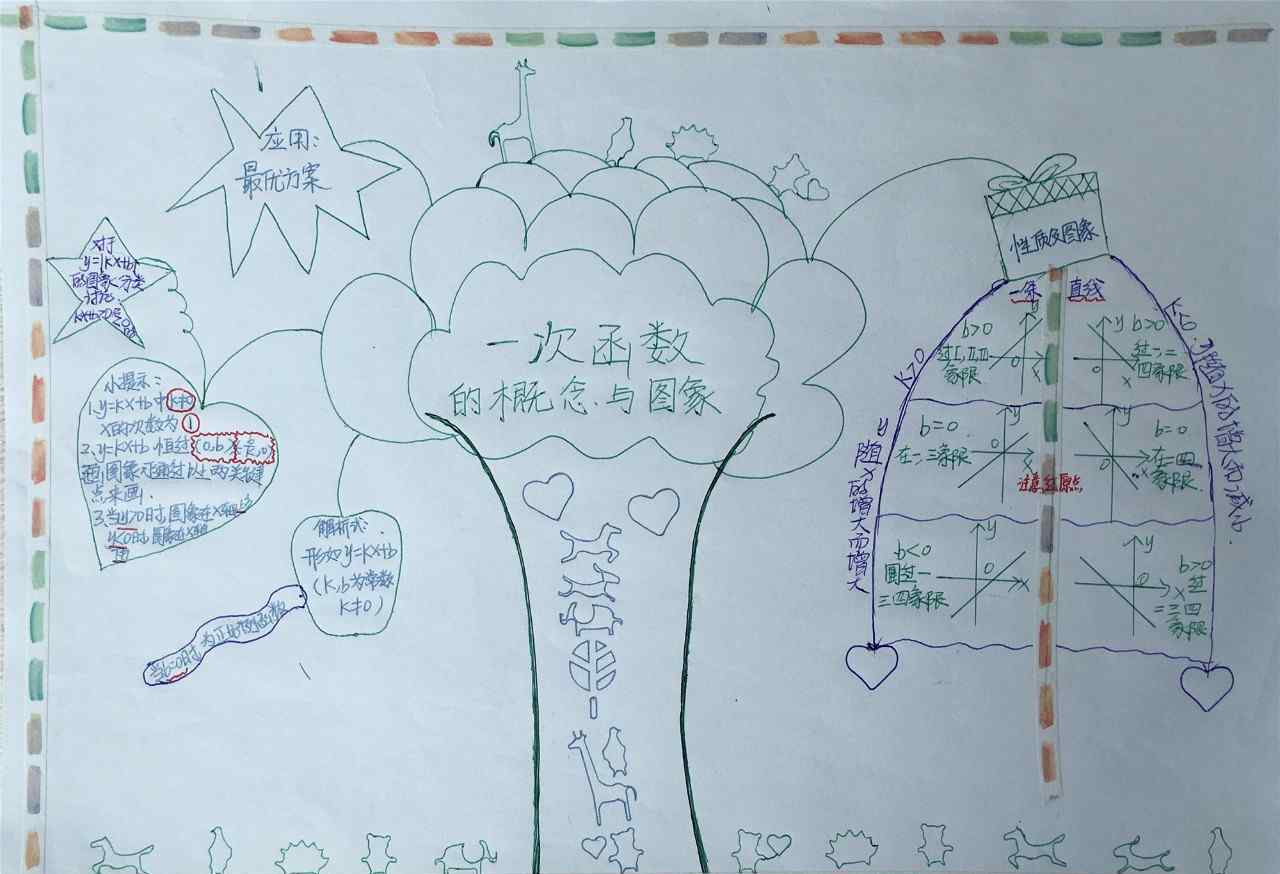 应用:
最优方案
对于
y=|kx+b|
的图象分类
讨论
小提示:
1.y=kx+b中k≠0
x的次数为1
2.y=kx+b恒过
图象可通过以上两类关键
点来画.
3.当y>0时,图象在x轴上
y<0时图象在x轴
下
解析式:
形如y=kx+b
(k,b为常数
k≠0)
当b=0时,为正比例函数
一次函数
的概念与图象
性质及图象
一条 直线
k>0 y随x的增大而增大
b>0
过I,II,III
象限
y
0
x
y
0
x
b>0
过一,二
四象限
b=0
在一,三象限
y
0
x
y
0
x
b=0
在二四
象限
过原点
b<0
图过一
三四象限
y
0
x
y
0
x
b>0
过
二三四
象限
y随x的增大而减小.